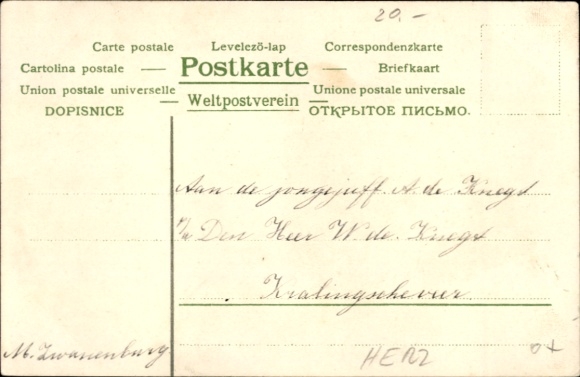 20.-
Carte postale Levelező-lap Correspondenzkarte
Cartolina postale — Postkarte — Briefkaart
Union postale universelle — Weltpostverein — Unione postale universale
DOPISNICE ОТКРЫТОЕ ПИСЬМО.
Aan de jongejuff. A. de Knegt
p/a Den Heer W. de. Knegt
Kralingscheveer
M. Zwanenburg
HERZ